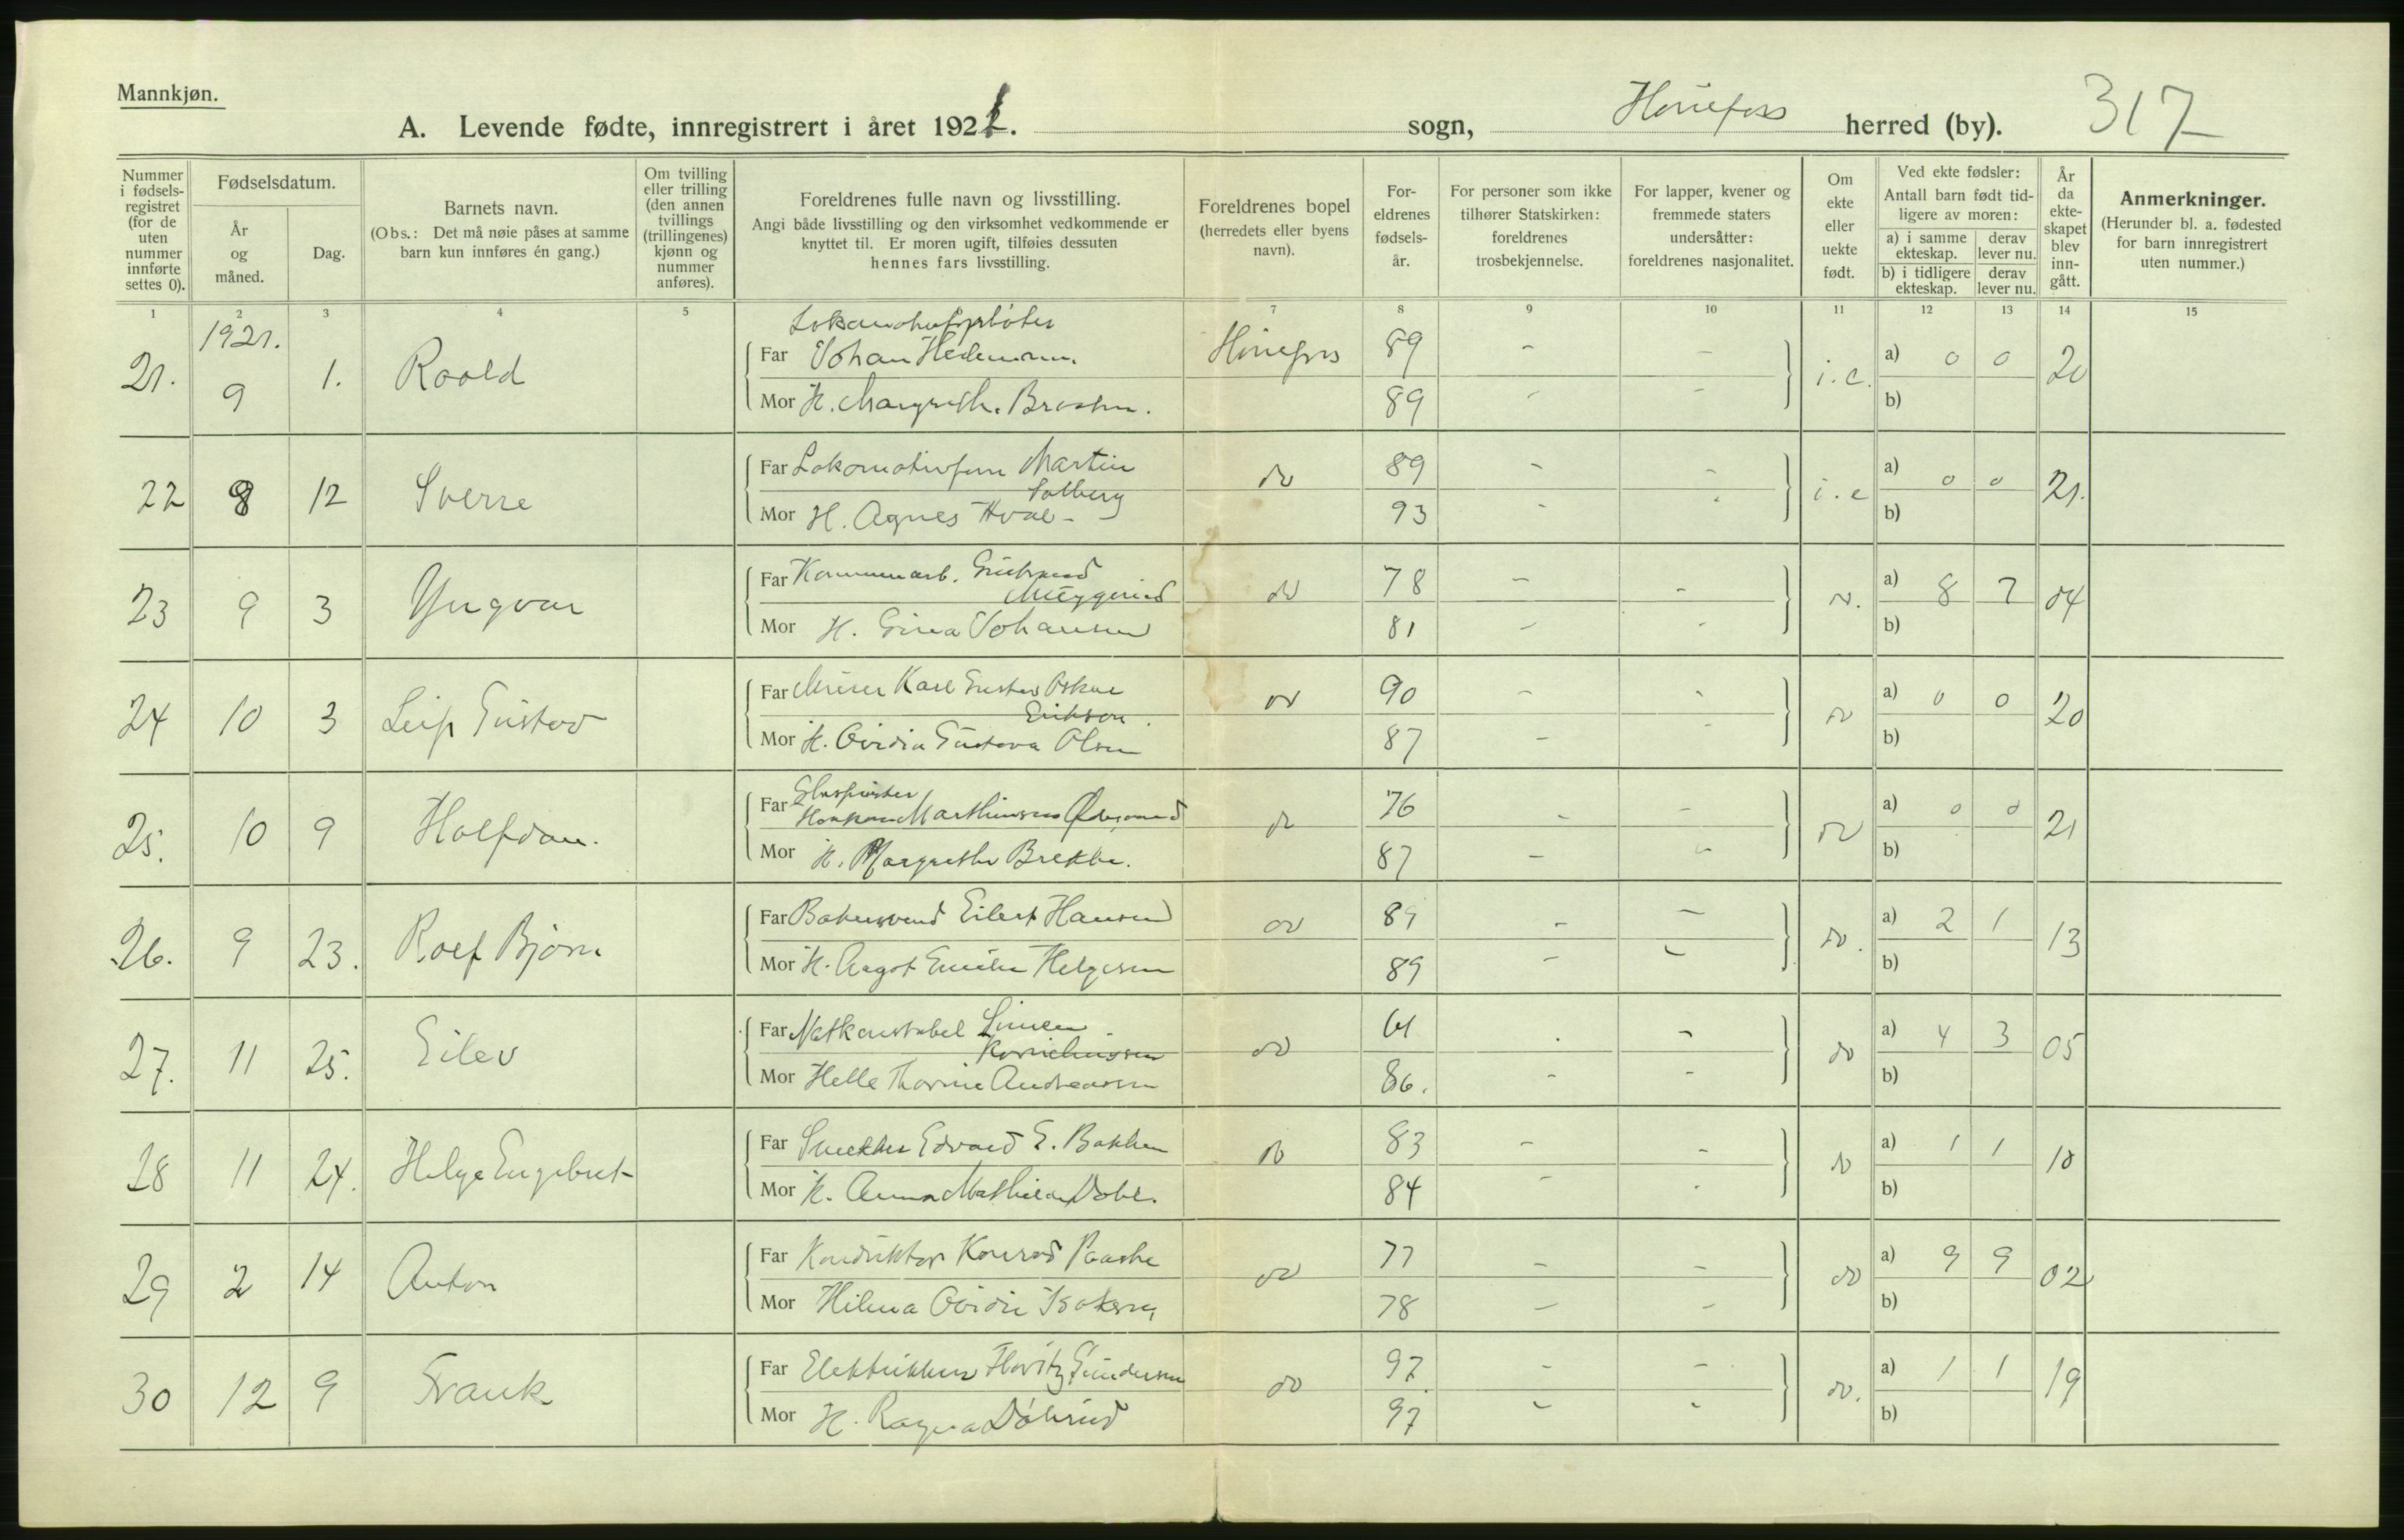 Mannkjøn.
A. Levende fødte, innregistrert i året 1921. sogn, Hønefoss herred (by). 317
Nummer i fødselsregistret (for de uten nummer innførte settes 0).
Fødselsdatum.
År og måned.
Dag.
Barnets navn.
(Obs.: Det må nøie påses at samme barn kun innføres én gang.)
Om tvilling eller trilling (den annen tvillings (trillingenes) kjønn og nummer anføres).
Foreldrenes fulle navn og livsstilling.
Angi både livsstilling og den virksomhet vedkommende er knyttet til. Er moren ugift, tilføies dessuten hennes fars livsstilling.
Foreldrenes bopel (herredets eller byens navn).
Foreldrenes fødselsår.
For personer som ikke tilhører Statskirken: foreldrenes trosbekjennelse.
For lapper, kvener og fremmede staters undersåtter: foreldrenes nasjonalitet.
Om ekte eller uekte født.
Ved ekte fødsler: Antall barn født tidligere av moren:
a) i samme ekteskap. derav lever nu.
b) i tidligere ekteskap. derav lever nu.
År da ekteskapet blev inngått.
Anmerkninger.
(Herunder bl. a. fødested for barn innregistrert uten nummer.)
1 2 3 4 5 7 8 9 10 11 12 13 14 15
1921.
21. 9 1. Roald Far Johan Hønefoss 89 - - i.e. a) 0 0 20
Mor H. Margreth. 89 - - b)
22 8 12 Sverre Far Martin Solberg do 89 - - i.e a) 0 0 21.
Mor H. Agnes Hval 93 - - b)
23 9 3 Yngvar Far Kommunearb. do 78 - - do. a) 8 7 04
Mor H. Gina Johansen 81 - - b)
24 10 3 Leif Gustav Far Murer Karl Gustav Oskar Erikson. do 90 - - do a) 0 0 20
Mor H. Ovidia Gustava Olsen 87 - - b)
25. 10 9 Halfdan. Far do 76 - - do a) 0 0 21
Mor H. Margrethe Brekke. 87 - - b)
26. 9 23. Rolf Bjørn Far Bakersvend Eilert Hansen do 89 - - do. a) 2 1 13
Mor H. Aagot Emilie Helgesen 89 - - b)
27. 11 25. Eilev Far Korneliussen do 61 - - do a) 4 3 05
Mor Helle Thorine Andreassen 86. - - b)
28 11 24. Helge Engebret Far Snekker Edvard E. Bakken do 83 - - do a) 1 1 10
Mor H. Anna Mathilde 84 - - b)
29 2 14 Anton Far Konduktør Konrad Paaske do 77 - - do a) 9 9 02
Mor Hilma Ovidie Isaksen 78 - - b)
30 12 9 Frank Far Elektriker Gundersen do 97 - - do. a) 1 1 19
Mor H. Ragna 97 - - b)